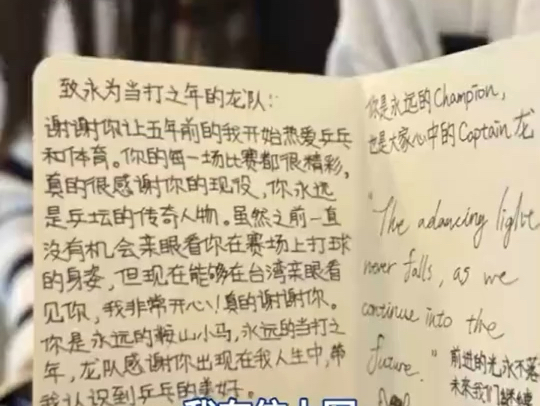 致永为当打之年的龙队:
谢谢你让五年前的我开始热爱乒乓
和体育。你的每一场比赛都很精彩,
真的很感谢你的现役,你永远
是乒坛的传奇人物。虽然之前一直
没有机会亲眼看你在赛场上打球
的身姿,但现在能够在台湾亲眼看
见你,我非常开心!真的谢谢你。
你是永远的鞍山小马,永远的当打之
年,龙队感谢你出现在我人生中,带
我认识到乒乓的美好。
你是永远的Champion,
也是大家心中的Captain龙
"The adancing light
never falls, as we
continue into the
future."
前进的光永不落
未来我们继续